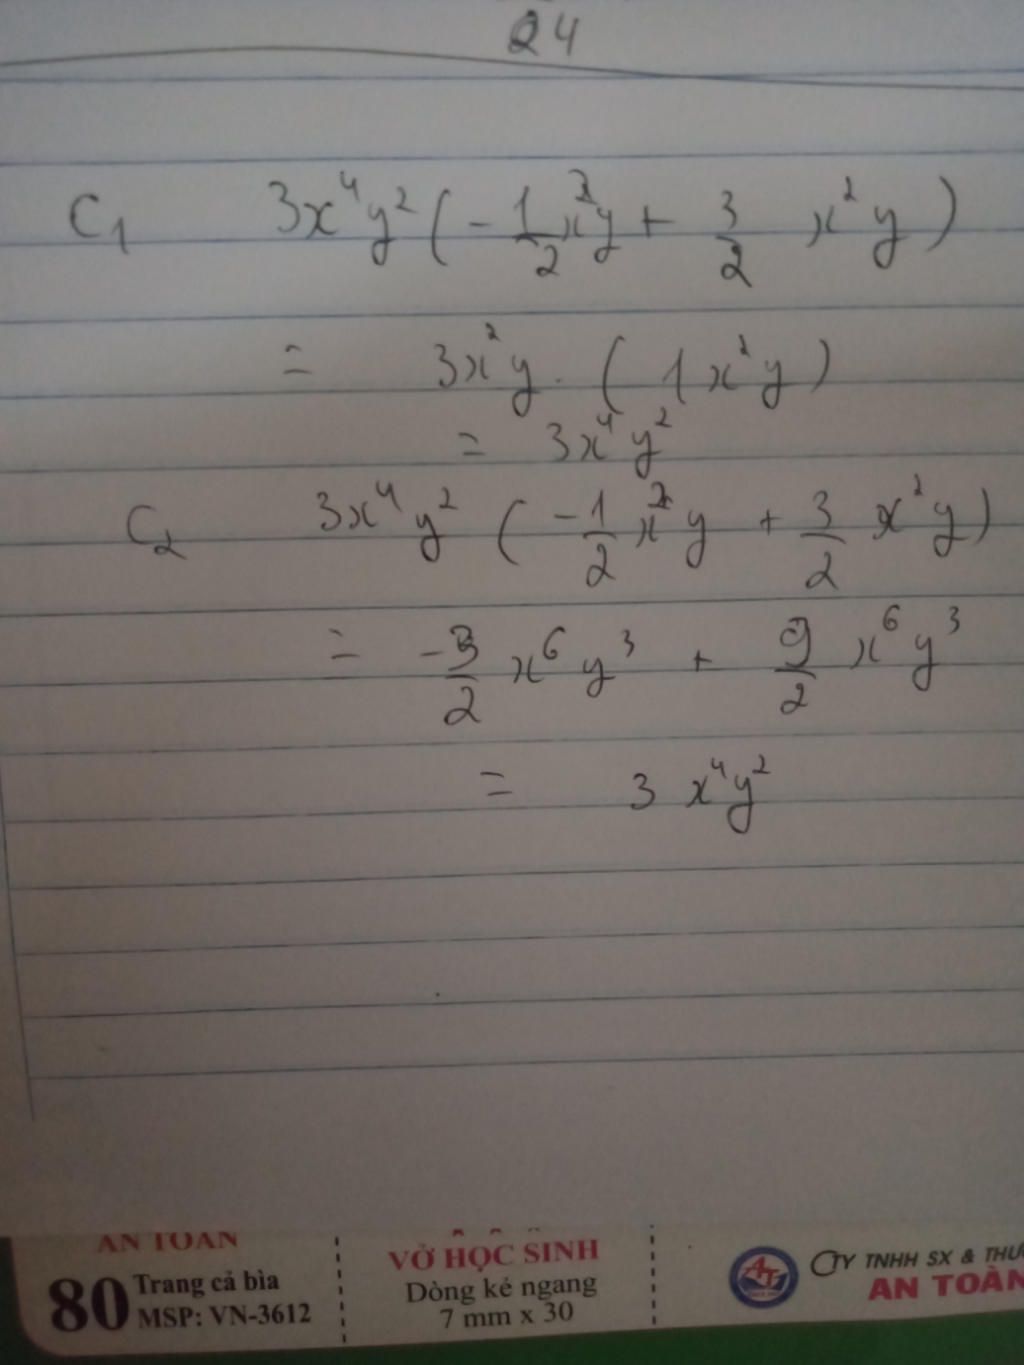 24
C₁ 3x⁴y²(-1/2 x²y + 3/2 x²y)
= 3x²y . (1x²y)
= 3x⁴y²
C₂ 3x⁴y² (-1/2 x²y + 3/2 x²y)
= -3/2 x⁶y³ + 9/2 x⁶y³
= 3x⁴y²
AN TOÀN
80 Trang cả bìa
MSP: VN-3612
VỞ HỌC SINH
Dòng kẻ ngang
7 mm x 30
AT
CTY TNHH SX &
AN TOÀN